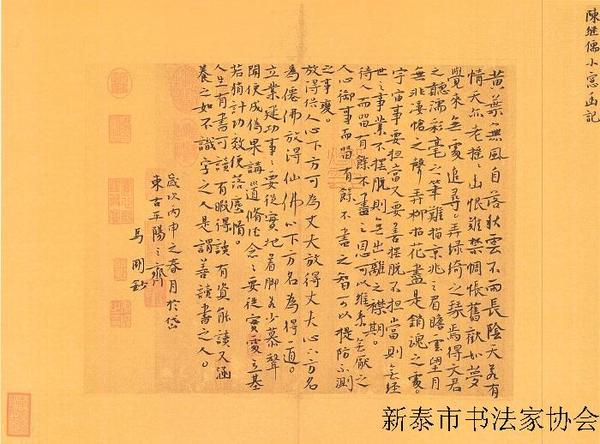 陳继儒小窓幽記
黄葉無風自落秋雲不雨長陰天若有
情天亦老摇摇幽恨難禁惆悵舊歡如夢
覺來無處追尋弄绿绮之琴焉得文君
之聽濡彩毫之筆難描京兆之眉瞻雲望月
無非淒愴之聲弄柳拈花盡是銷魂之處
宇宙事要担當又要善摆脱不担當則無经
世之事業不摆脱則無出離之襟期
待人而留有餘不盡之恩可以維系無厭之
人心御事而留有餘不盡之智可以提防不測
之事變
放得俗人心下方可為丈夫放得丈夫心下方名
為僊佛放得仙佛心下方名為得道
立業建功事事要從實地着脚若少慕聲
聞便成偽果講道脩德念念要從實處立基
若稍計功效便落塵情
人生有書可讀有暇得讀有資能讀又涵
養之如不識字之人是謂善讀書之人
歲次丙申之春月於岱
東古平陽之齋
馬開鈔
新泰市书法家协会